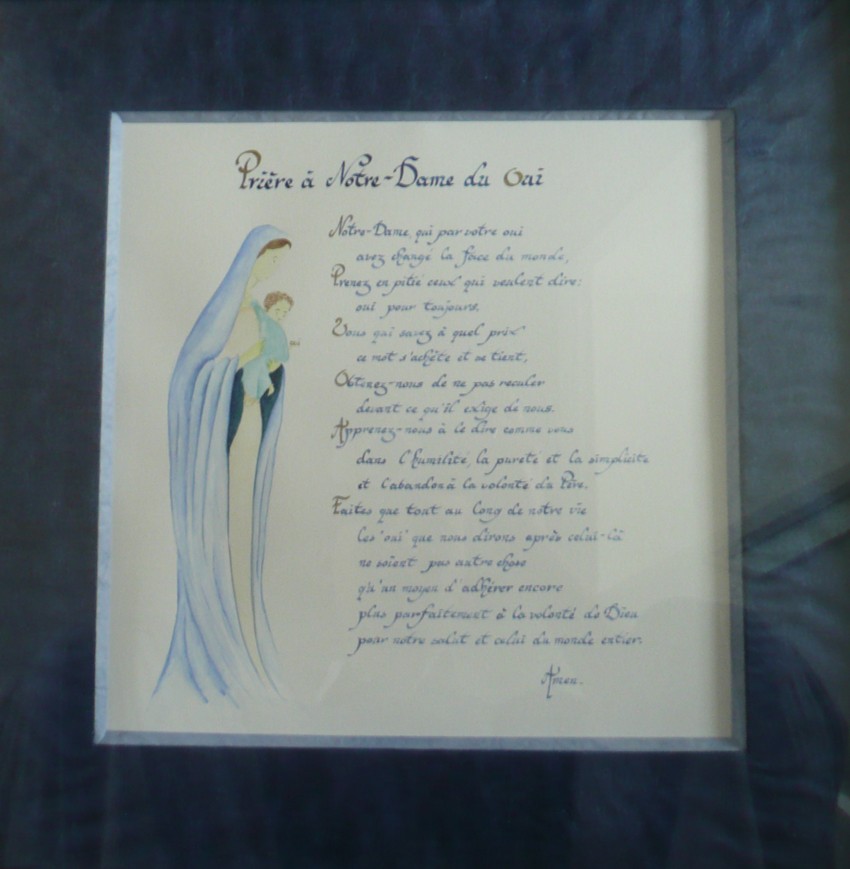 Prière à Notre-Dame du Oui
Notre-Dame, qui par votre oui
avez changé la face du monde,
Prenez en pitié ceux qui veulent dire:
oui pour toujours.
Vous qui savez à quel prix
ce mot s'achète et se tient,
Obtenez-nous de ne pas reculer
devant ce qu'il exige de nous.
Apprenez-nous à le dire comme vous
dans l'humilité, la pureté et la simplicité
et l'abandon à la volonté du Père.
Faites que tout au long de notre vie
les "oui" que nous dirons après celui-là
ne soient pas autre chose
qu'un moyen d'adhérer encore
plus parfaitement à la volonté de Dieu
pour notre salut et celui du monde entier.
Amen.
oui